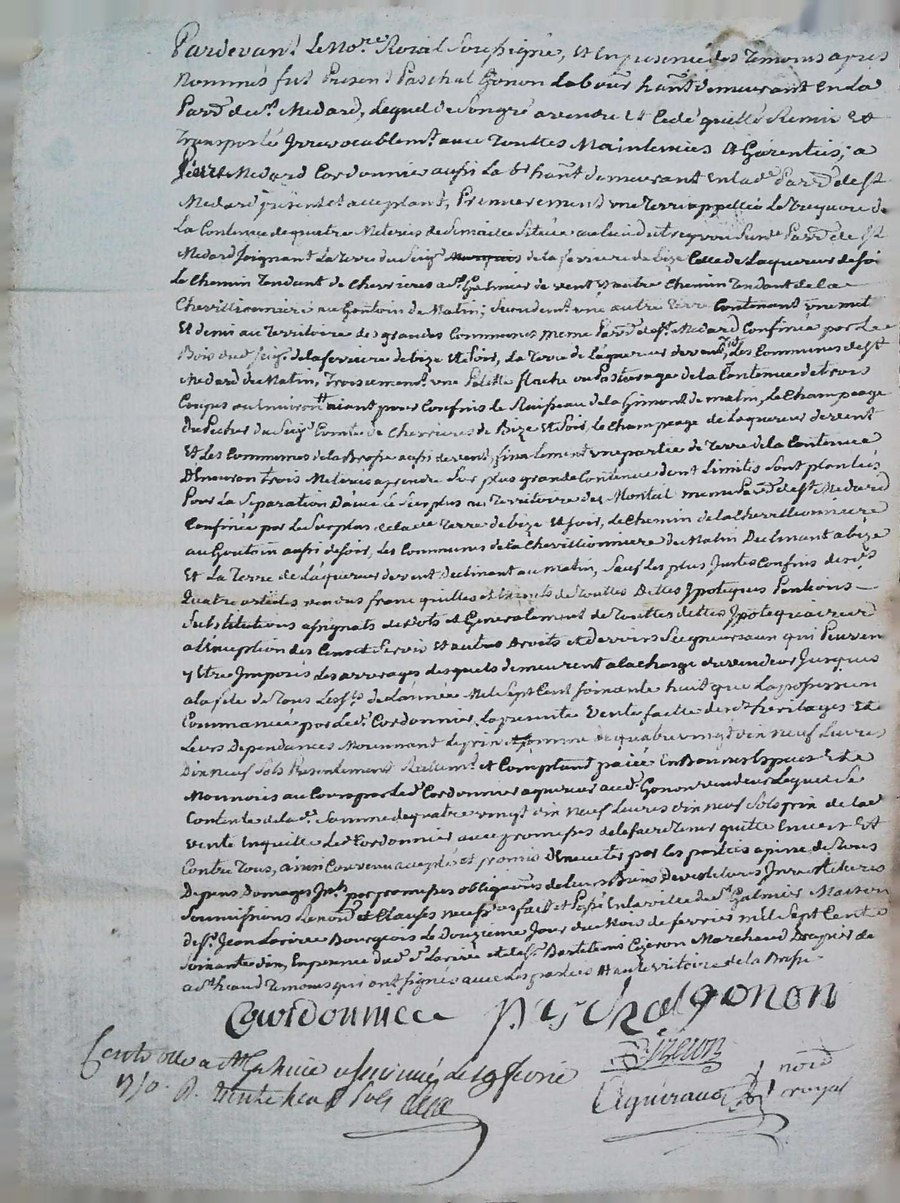 Pardevant Le No.re Roial Soussigné, et En presence des Temoins apres
Nommés fut Present Paschal Gonon Labour hant demeurant En La
Parr. de St. Medard, Lequel de Son gré a vendu et Cedé quitté Remis et
Transporté Irrevocablemt. avec Touttes Maintenües et Garenties; a
Medard Cordonnier aussi Lab. hant demeurant En lad.e Parr. de St.
Medard present et acceptant, Premierement une Terre appellée La
La Contenue de quatre Meterés de Semaille Située au Lieu
Medard Joignant La Terre du Seig. de la ferriere de bize Celle de Laquereur de soir
Le Chemin Tendant de Chevrieres a St. Galmier de vent, et autre Chemin Tendant de la
Chevillionniere au Goutoin de Matin; une autre Terre Contenant une
Et demi au Territoire des grandes Communes meme Parr. de St. Medard Confinée par Le
Bois dud. Seig. de la ferriere de bize et soir, La Terre de Laquereur de vent, Les Communes de St.
Medard du Matin, Troisiement. une ou Pasturage de la Contenue de trois
Coupes ou Environ aiant pour Confins Le Ruisseau de la Gimond de matin, Le
du du Seig. Comte de Chevrieres de Bize et soir, Le de Laquereur de vent
Et Les Communes de la Brosse aussi de vent, finalement une partie de Terre de la Contenue
D'Environ trois Meterés a prendre Sur plus grande Contenue dont Limites Sont plantés
Pour La Separation D'avec Le Surplus au Territoire du Monteil meme Parr. de St. Medard
Confinée par Le Surplus de lad. Terre de bize et soir, Le Chemin de la Chevillionniere
au Goutoin aussi de soir, Les Communes de la Chevillionniere du Matin Declinant a bize
Et La Terre de Laquereur de vent Declinant au matin, Sauf Les plus Justes Confins desd.
Quatre articles vendus franc quittes et de Touttes Dettes Ipoteques Pentions
Substitutions assignats de dots et Generalement de Touttes dettes Ipotequaires
a L'Exception des Cens et Servis et autres Droits et devoirs Seigneuriaux qui Peuvent
y Etre Imposés Les arrerages desquels demeurent a la charge du vendeur Jusques
a la fete de Tous Les Sts. de L'année Mil Sept Cent Soixante huit que La possession
Commancé par Led. Cordonnier, La presente Vente faitte desd. heritages et
Leurs Dependances Moiennant Le prix et somme de quatre vingt dix neuf Livres
Dix neuf Sols Presentement Reellemt. et Comptant paiée En Bonnes Especes et de
Monnoie au Cours par Led. Cordonnier aquereur aud. Gonon vendeur Lequel Se
Contente de lad. Somme de quatre vingt dix neuf Livres dix neuf Sols prix de lad.
vente En quitte Led. Cordonnier avec promesses de le faire Tenir quitte Envers Et
Contre Tous, ainsi Convenu accepté et promis D'Executer par Les parties a peine de Tous
Depens Domages Ints. par promesses obligations de Leurs Biens
Soumissions Renons. et Clauses necess.es fait et Passé En la ville de St. Galmier Maison
de Sr. Jean Larive Bourgeois Le Douzieme Jour du Mois de fevrier mil Sept Cent
Soixante dix, En presence dud. Sr. Larive et de Sr. Bartelemi Cizeron Marchand Drapier de
Temoins qui ont signés avec Les parties de la Brosse
Courdounier Paschal gonon
Cizeron
Controllé a St. Galmier le dix neuf fevrier
1770. R. Sols
no.re
royal